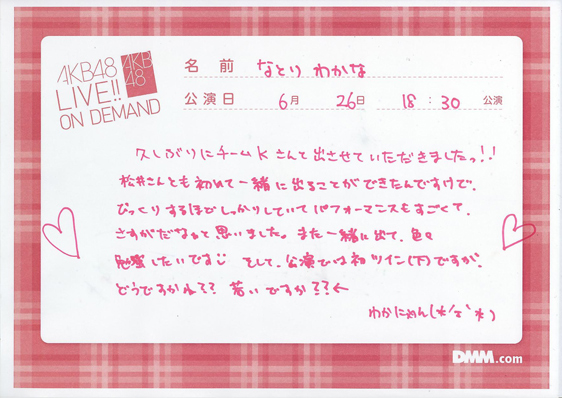 AKB48
LIVE!!
ON DEMAND
AKB
48
名前 なとり わかな
公演日 6月 26日 18:30 公演
久しぶりにチームKさんと出させていただきましたっ!!
松井さんとも初めて一緒に出ることができたんですけど、
びっくりするほどしっかりしていてパフォーマンスもすごくて、
さすがだなぁと思いました。また一緒に出て、色々
勉強したいです そして、公演では初ツイン(下)ですが、
どうですかね?? 若いですか??←
わかにゃん(*'ε`*)
DMM.com